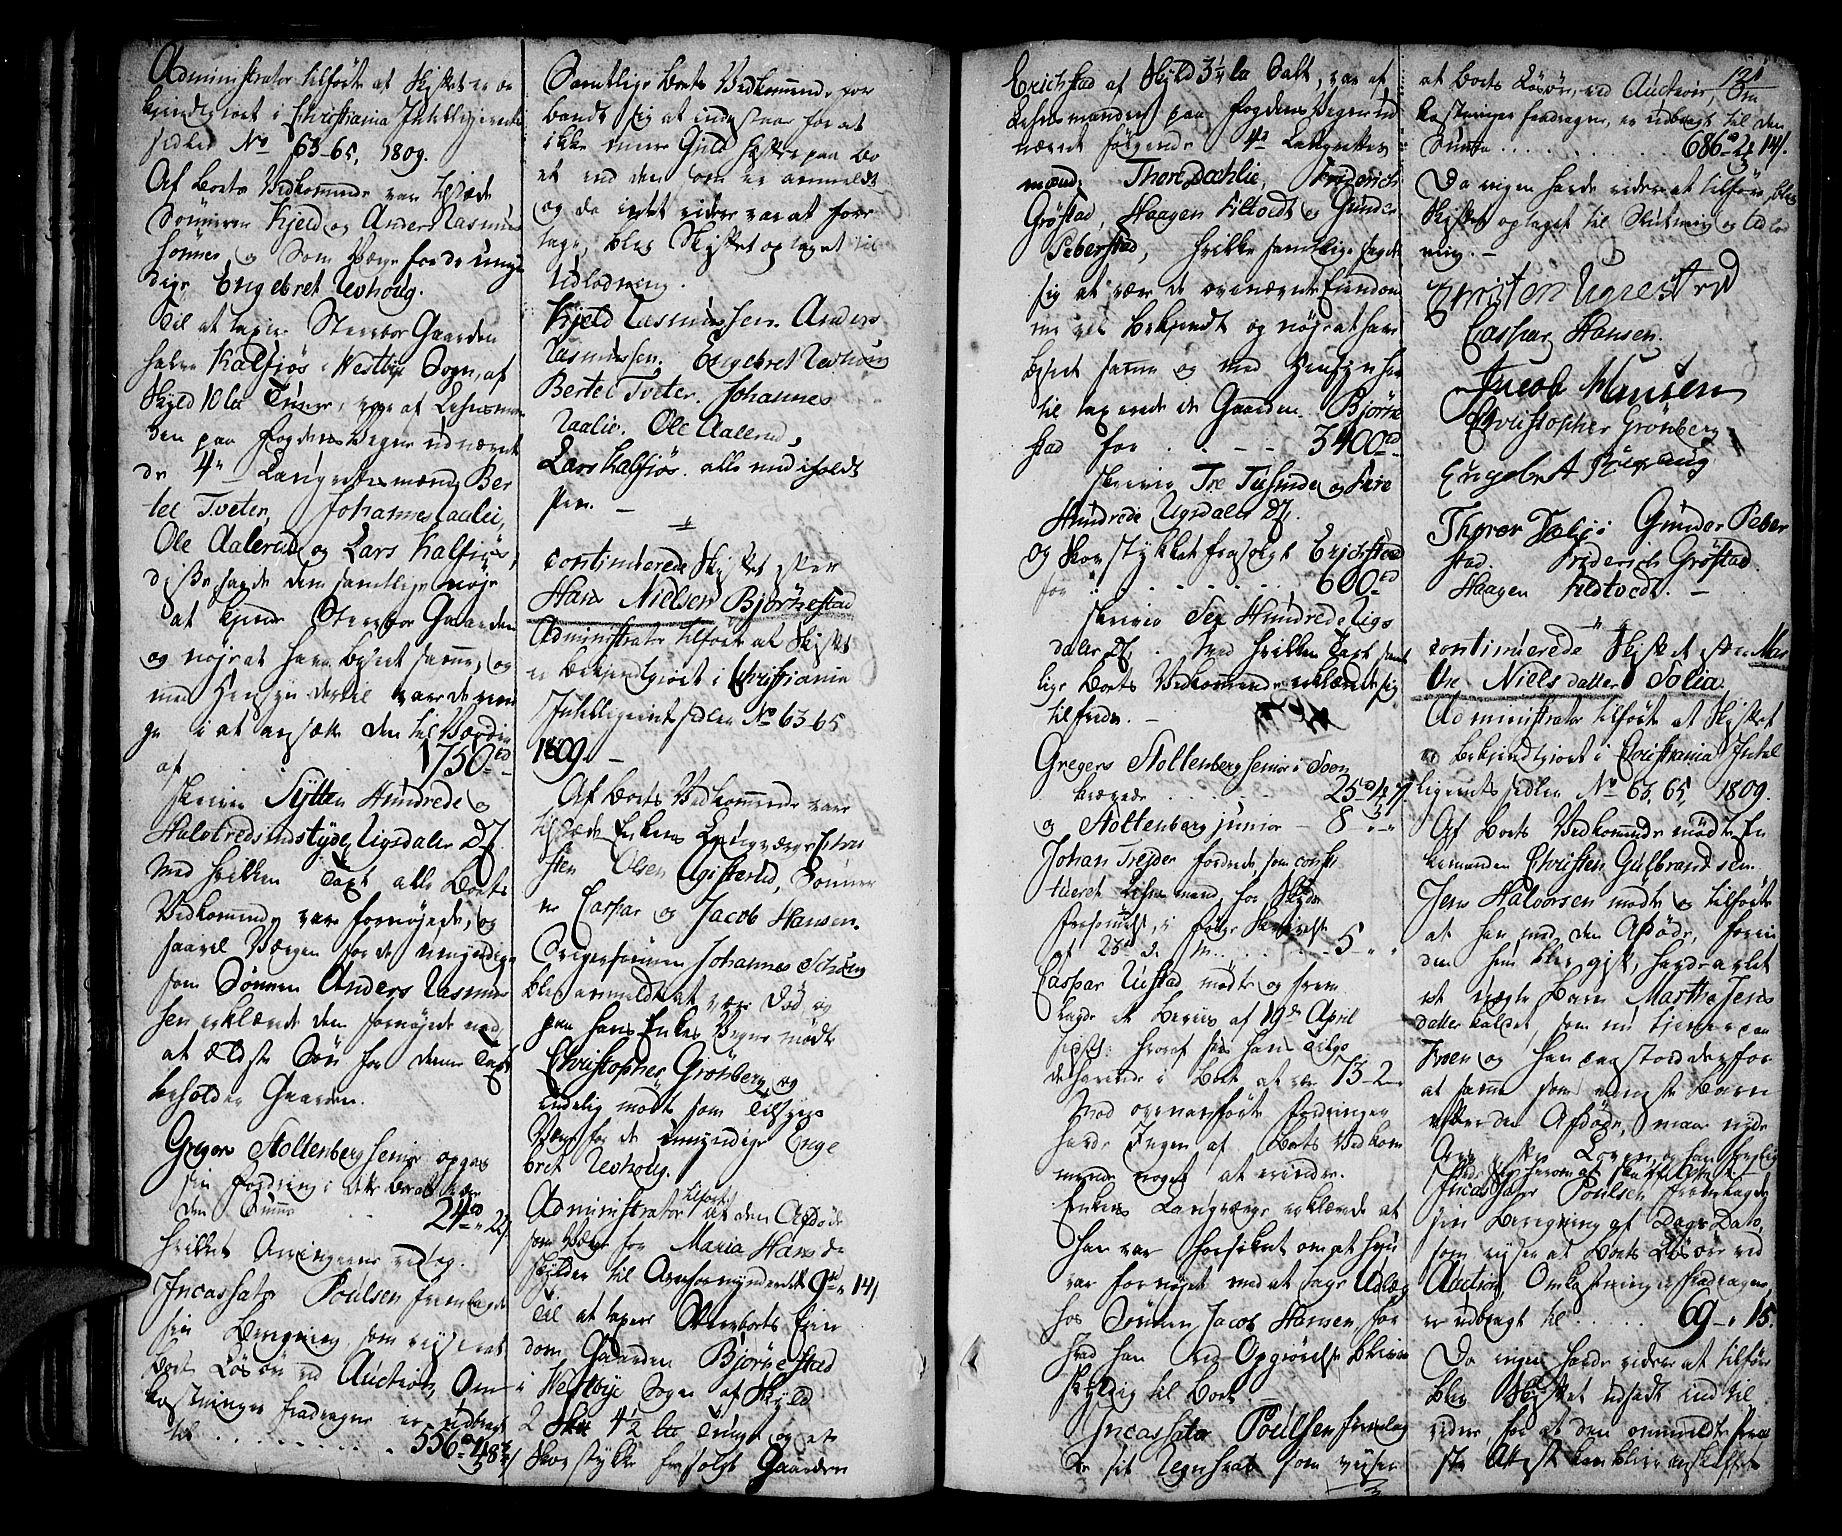 Administrator tilførte at Skiftet er be
kiendtgiort i Christiania Intelligents
sedler No 63-65, 1809.
Af Boets Vedkommende var tilstæde
Sønnerne Kield og Anders Rasmus
sønner, og som Værge for de umyn
dige Engebret Revhoug.
Til at taxere Stervboe Gaarden
halve Kalsjøs i Westbye Sogn, af
Skyld 10 lb Tunge, var af Lehnsman
den paa Fogdens Vegne udnævnt
de 4re Laugrettesmænd Ber
tel Tveter, Johannes Raalie,
Ole Aalerud og Lars Kalsjøs,
disse sagde dem samtlige nøje
at kjende Stervboe Gaarden
og nøjeat have beseet samme, og
med Hensyn dertil vare de eeni
ge i at ansætte den til Værdie
af 1750 rd
skriver Sytten Hundrede og
Halvtredsindstyve Rigsdaler DC.
Med hvilken Taxt alle Boets
Vedkommende vare fornøjede, og
saavel Værgen for de umyndige
som Sønnen Anders Rasmus
sen erklærede dem fornøjede med,
at ældste Søn for denne Taxt
beholder Gaarden.
Gregers Stoltenberg senior opgav
sin Fordring i dette Boe at være
den Summa 24 rd
hvilket Arvingerne vedtog.
Incassator Poulsen fremlagde
sin Beregning, som viiser at
Boets Løsøre ved Auction, Om
kostninger fradragne er udbragt
til 556
Samtlige Boets Vedkommende for
bandt sig at indestaae for at
ikke mere Gield hefter paa Bo
et end den som er anmeldt
og da intet videre var at fore
tage, blev Skiftet optaget til
Udlodning.
Kjeld Rasmussen. Anders
Rasmussen. Engebret Revhoug
Bertel Tveter. Johannes
Raalie. Ole Aalerud,
Lars Kalsjøs. alle med iholdt
Pen.
continuerede Skiftet efter
Hans Nielsen Bjørnestad
Administrator tilførte at Skiftet
er bekiendtgiort i Christiania
Intelligentssedler No 63-65
1809.
Af Boets Vedkommende vare
tilstæde Enkens Laugværge Chri
sten Olsen Ugisterud, Sønner
ne Caspar og Jacob Hansen.
Svigersønnen Johannes
blev anmeldt at være Død, og
paa hans Enkes Vegne mødte
Christopher Grønberg, og
endelig mødte som Tilsyns
Værge for de umyndige Enge
bret Revhoug.
Administrator tilførte at den Afdøde
som Værge for Maria Hansd.
skylder til Overformynderiet 9
Til at taxere Stervboets Eien
dom Gaarden Bjørnestad
i Westbye Sogn af Skyld
2 Skd 4 1/2 lb Tunge og et
Skovstykke frasolgt Gaarden
121
Erichstad af Skyld 3 1/4 lb Salt, var af
Lehnsmanden paa Fogdens Vegne ud
nævnet følgende 4re Laugrettes
mænd: Thore Dæhlie, Friderich
Grøstad, Haagen Kiltvedt og Gunder
Peberstad, hvilke samtlige sagde
sig at være de ovennævnte Eiendom
me vel bekjendt og nøjeat have
beseet samme og med Hensyn her
til taxerede de Gaarden Bjørne
stad for 3400 rd
skriver Tre Tusinde og Fire
Hundrede Rigsdaler DC.
og Skovstykket frasolgt Erichstad
for 600 rd
skriver Sex Hundrede Rigs
daler DC. Med hvilken Taxt samt
lige Boets Vedkommende erklærede sig
tilfreds.
Gregers Stoltenberg senior i Soon
krævede 25
og Stoltenberg junior 8
Johan Trejder fordrede som consti
tueret Lehnsmand, for Skyds
af 5
Caspar Ristad mødte og frem
lagde et Beviis af 19de April
hvoraf sees hans Tilgo
dehavende i Boet at være 73-2
Mod ovenanførte Fordringer
havde Ingen af Boets Vedkom
mende noget at erindre.
Enkens Laugværge erklærede at
han var forsikret om at hun
var fornøjet med at tage Udlæg
hos Sønnen Jacob Hansen, for
hvad han ved Opgiørelse bliver
skyldig til Boet.
Incassator Poulsen fremlag
de sit Regnskab som viiser
at Boets Løsøre, ved Auction, Om
kostninger fradragne, er udbragt til den
Summa 686
Da ingen havde videre at tilføre blev
Skiftet optaget til Slutning og Udlod
ning.
Christen Ugiesterud
Caspar Hansen.
Jacob Hansen
Christopher Grønberg
Engebret Revhoug
Thore Dælie Gunder Peber
stad. Friderich Grøstad.
Haagen Kiltvedt.
continuerede Skiftet efter Mar
the Nielsdatter Solia
Administrator tilførte at Skiftet
er bekiendtgiort i Christiania Intel
ligentssedler No 63, 65, 1809.
Af Boets Vedkommende mødte En
kemanden Christen Gulbrandsen.
Jens Halvorsen mødte og tilførte
at han med den Afdøde, foren
den hun blev gift, havde avlet
et uægte Barn Marthe Jens
datter kaldet, som nu tjener paa
Kroen og han paastod derfor
at samme som eeneste Barn
efter den Afdøde, maae nyde
Arv efter Loven
Incassator Poulsen fremlagde
sin Beregning af Dags Dato,
som viiser at Boets Løsøre ved
Auction, Omkostninger fradragne
er udbragt til 69 - 15.
Da ingen havde videre at tilføre
blev Skiftet udsadt indtil
videre, for at den ommeldte Præ
ste Attest kan blive anskaffet